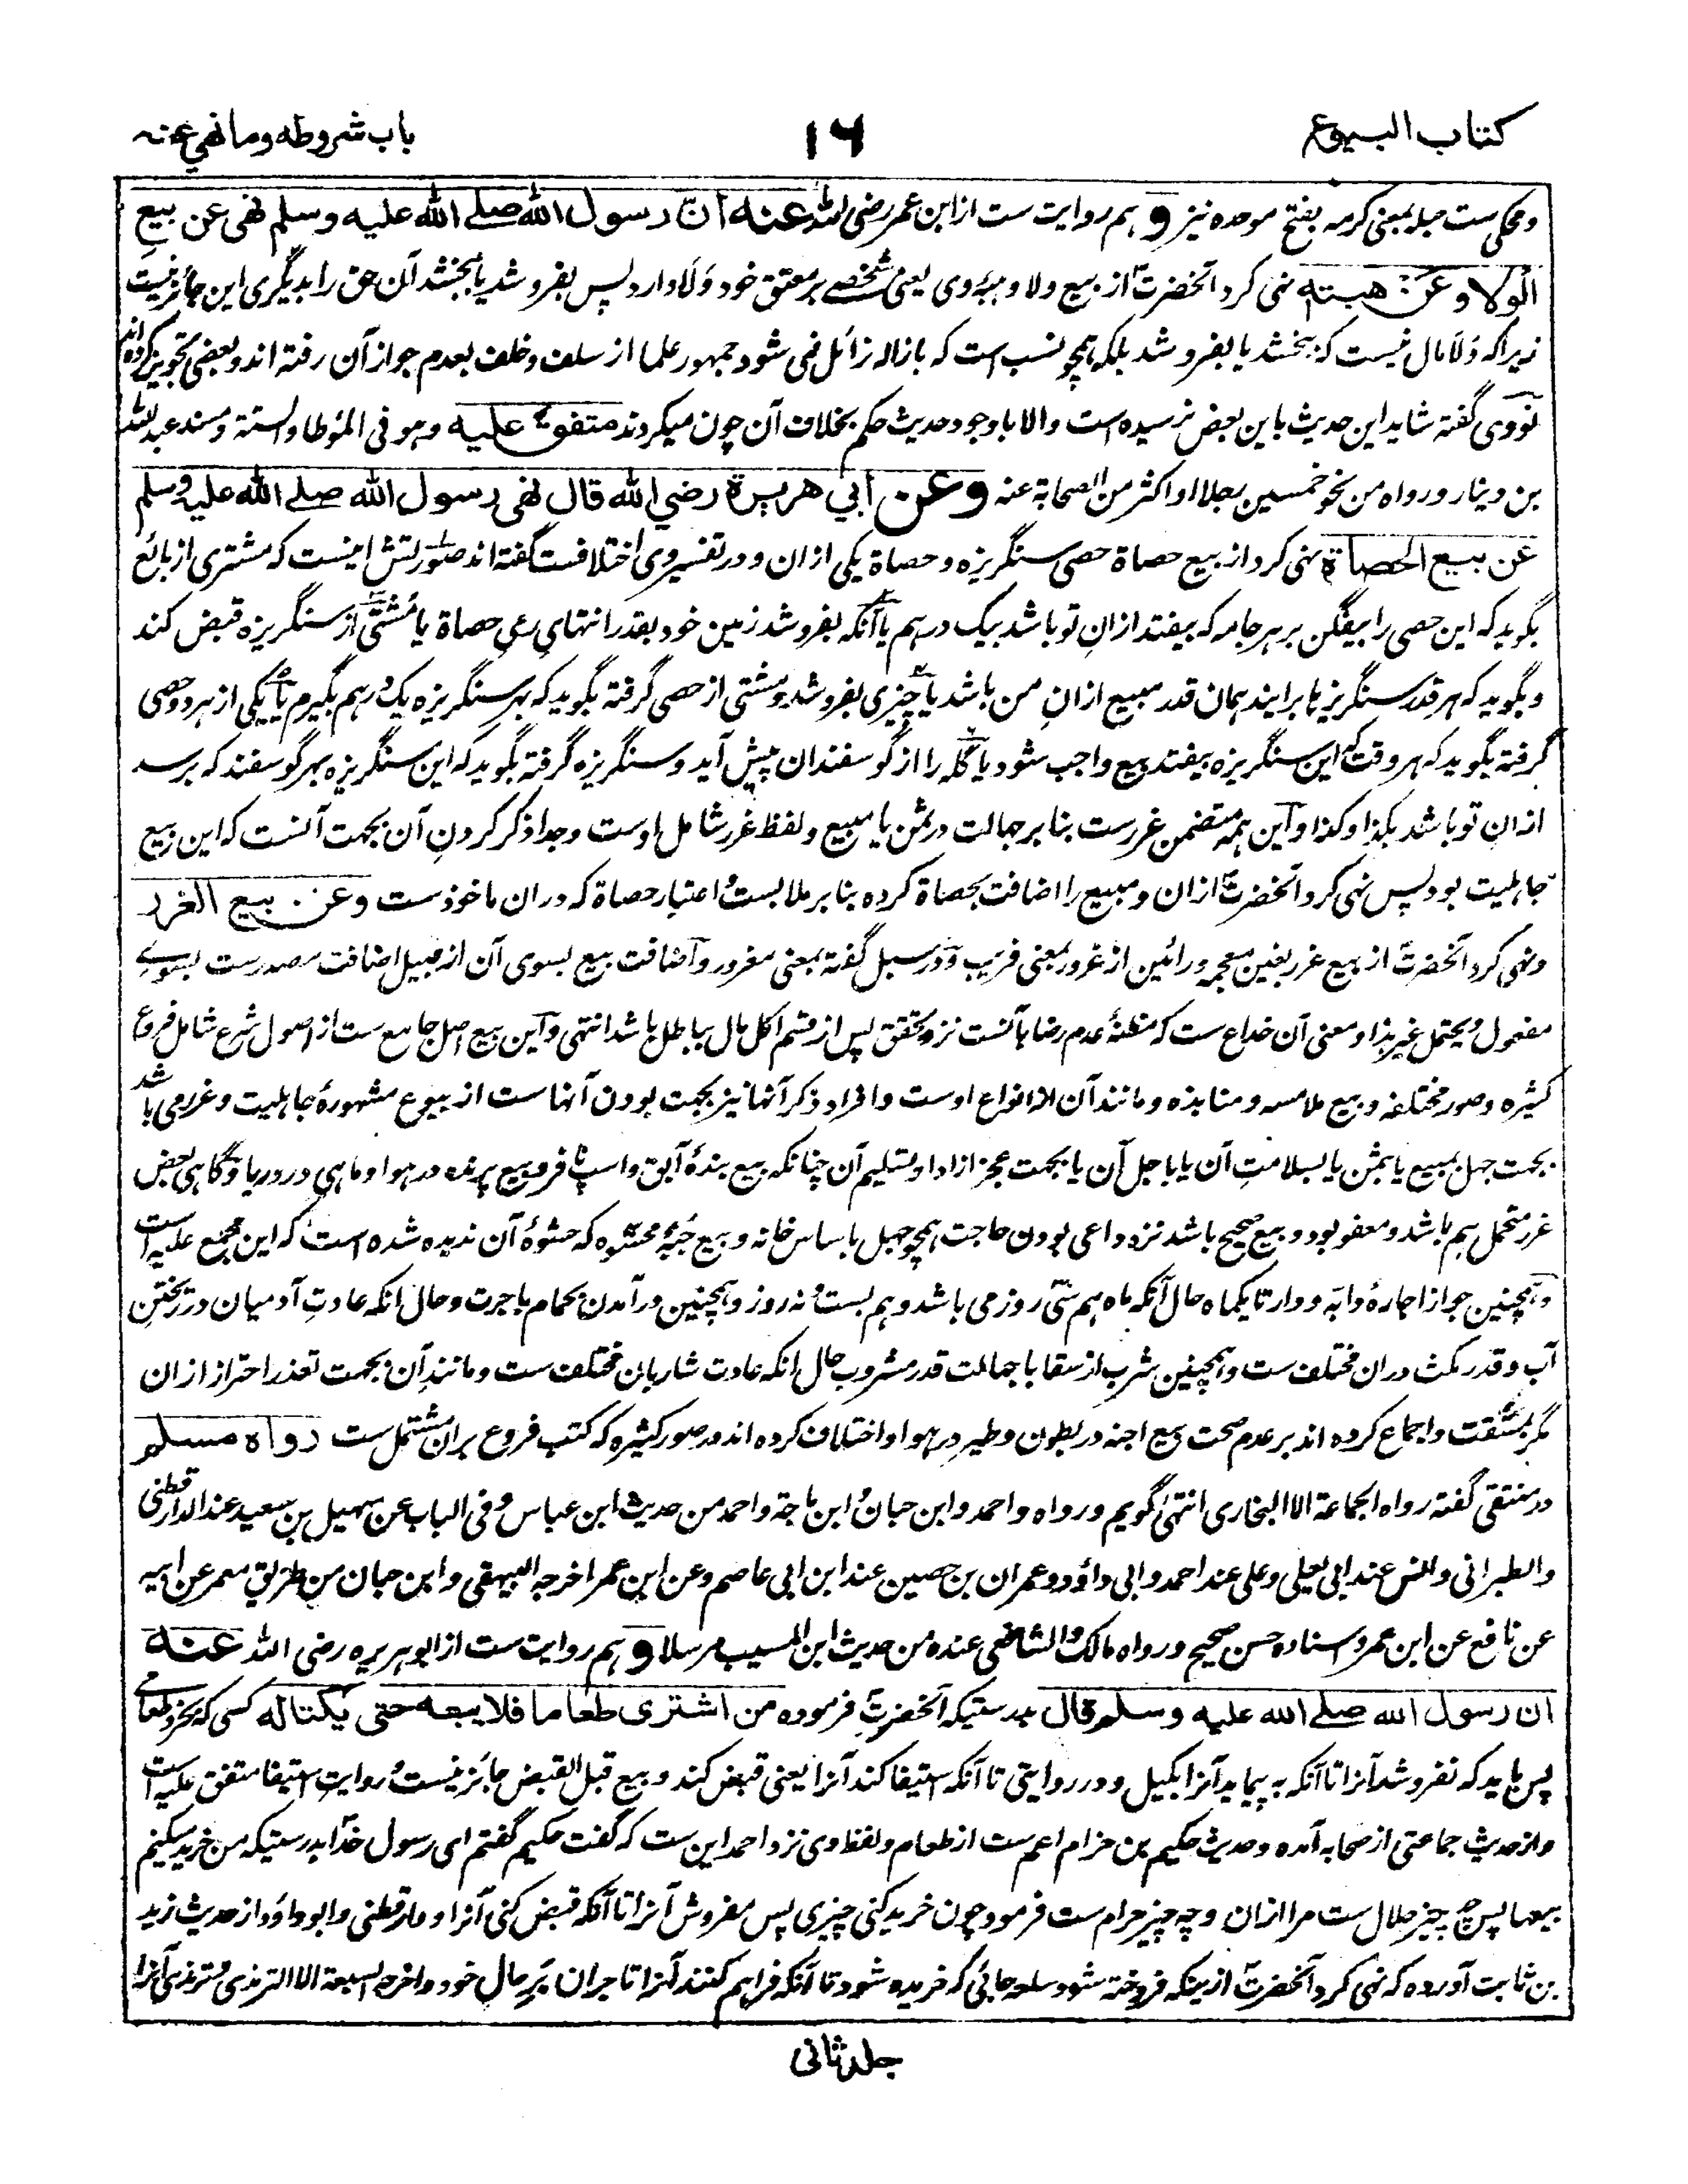 کتاب البیوع
۱۶
باب شروطه وما نهي عنه
ومحکی ست حبله بمعنی کرمه بفتح موحده نیز و هم روایت ست از ابن عمر رضی الله عنه ان رسول الله صلے الله علیه وسلم نهی عن بیع
الولاء وعن هبته نهی کرد آنحضرتؐ از بیع ولا و هبۂ وی یعنی شخصے بر معتق خود وَلَا دارد پس بفروشد یا بخشد آن حق را بدیگری این جائز نیست
زیرا که وَلَا مال نیست که بخشد یا بفروشد بلکه همچو نسب است که بازاله زائل نمی شود جمهور علما از سلف و خلف بعدم جواز آن رفته اند و بعضی تجویز کرده اند
نووی گفته شاید این حدیث باین بعض نرسیده است والا باوجود حدیث حکم بخلاف آن چون میکردند متفق علیه وهو فی المؤطا والستة و مسند عبدالله
بن دینار ورواه من نحو خمسین رجلا او اکثر من الصحابة عنه وعن ابي هريرة رضي الله قال نهى رسول الله صلے الله علیه وسلم
عن بيع الحصاة نهی کرد از بیع حصاة حصی سنگریزه و حصاة یکی ازان و در تفسیر وی اختلافست گفته اند صورتش اینست که مشتری از بائع
بگوید که این حصی را بیفگن بر هر جامه که بیفتد ازانِ تو باشد بیک درهم یا آنکه بفروشد زمین خود بقدر انتهایِ رمیِ حصاة یا مُشتی از سنگریزه قبض کند
و بگوید که هر قدر سنگریزها برایند همان قدر مبیع ازانِ من باشد یا چیزی بفروشد و مشتی از حصی گرفته بگوید که بهر سنگریزه یک درهم بگیرم یا یکی از هر دو حصی
گرفته بگوید که هر وقت که این سنگریزه بیفتد بیع واجب شود یا گله را از گوسفندان پیش آید و سنگریزه گرفته بگوید که این سنگریزه بهر گوسفند که برسد
ازان تو باشد بکذا و کذا و این همه متضمن غررست بنا بر جهالت در ثمن یا مبیع و لفظ غرر شامل اوست و جدا ذکر کردنِ آن بجهت آنست که این بیع
جاهلیت بود پس نهی کرد آنحضرتؐ ازان و مبیع را اضافت بحصاة کرده بنا بر ملابست و اعتبار حصاة که دران ماخوذست وعن بیع الغرر
و نهی کرد آنحضرتؐ از بیع غرر بغین معجمه و رائین از غرور بمعنی فریب و در سبل گفته بمعنی مغرور و اضافت بیع بسوی آن از قبیل اضافت مصدرست بسوے
مفعول و یحتمل غیر هذا و معنی آن خداع ست که مظنۂ عدم رضا بآنست نزد تحقق پس از قسم اکل مال بباطل باشد انتهی و این بیع اصل جامع ست از اصول شرع شامل فروع
کثیره و صور مختلفه و بیع ملامسه و منابذه و مانند آن از انواع اوست و افراد ذکر آنها نیز بجهت بودن آنهاست از بیوع مشهورۂ جاهلیت و غرر می باشد
بجهت جهل بمبیع یا بثمن یا بسلامتِ آن یا باجل آن یا بجهت عجز از ادا و تسلیم آن چنانکه بیع بندۂ آبق و اسپ نافر و بیع پرنده در هوا و ماهی در دریا و گاهی بعض
غرر متحمل هم باشد و معفو بود و بیع صحیح باشد نزد داعی بودن حاجت همچو جهل باساس خانه و بیع جُبّۂ محشوه که حشوۂ آن ندیده شده است که این مجمع علیه است
و همچنین جواز اجارۂ دابه و دار تا یکماه حال آنکه ماه هم سی روز می باشد و هم بست و نه روز و همچنین در آمدن بحمام باجرت و حال آنکه عادتِ آدمیان در ریختنِ
آب و قدر مکث دران مختلف ست و همچنین شرب از سقا با جهالت قدر مشروب حال آنکه عادت شاربان مختلف ست و مانندِ آن بجهت تعذر احتراز ازان
مگر بمشقت و اجماع کرده اند بر عدم صحت بیع اجنه در بطون و طیر در هوا و اختلاف کرده اند در صور کثیره که کتب فروع بران مشتمل ست رواه مسلم
در منتقی گفته رواه الجماعة الا البخاری انتهٰی گویم ورواه واحمد وابن حبان وابن ماجة واحمد من حدیث ابن عباس وفی الباب عن سهیل بن سعید عند الدارقطنی
والطبرانی وانس عند ابی یعلی وعلی عند احمد وابی داؤد وعمران بن حصین عند ابن ابی عاصم وعن ابن عمر اخرجه البیهقی وابن حبان من طریق معمر عن ابیه
عن نافع عن ابن عمر واسناده حسن صحیح ورواه مالک والشافعی عنده من حدیث ابن المسیب مرسلا و هم روایت ست از ابوهریره رضی الله عنه
ان رسول الله صلے الله علیه وسلم قال بدرستیکه آنحضرتؐ فرموده من اشتری طعاما فلا یبعه حتی یکتاله کسی که بخرد طعامے
پس باید که نفروشد آنرا تا آنکه به پیماید آنرا بکیل و در روایتی تا آنکه استیفا کند آنرا یعنی قبض کند و بیع قبل القبض جائز نیست و روایت استیفا متفق علیه است
و از حدیث جماعتی از صحابه آمده و حدیث حکیم بن حزام اعم ست از طعام و لفظ وی نزد احمد این ست که گفت حکیم گفتم ای رسول خدا بدرستیکه من خرید میکنم
بیعها پس چه چیز حلال ست مرا ازان و چه چیز حرام ست فرمود چون خرید کنی چیزی پس مفروش آنرا تا آنکه قبض کنی آنرا و دارقطنی و ابوداؤد از حدیث زید
بن ثابت آورده که نهی کرد آنحضرتؐ ازینکه فروخته شود سلعه جائی که خریده شود تا آنکه فراهم کنند آنرا تاجران بَرِ حال خود واخرجه السبعة الا الترمذی و ترمذی آنرا
جلد ثانی